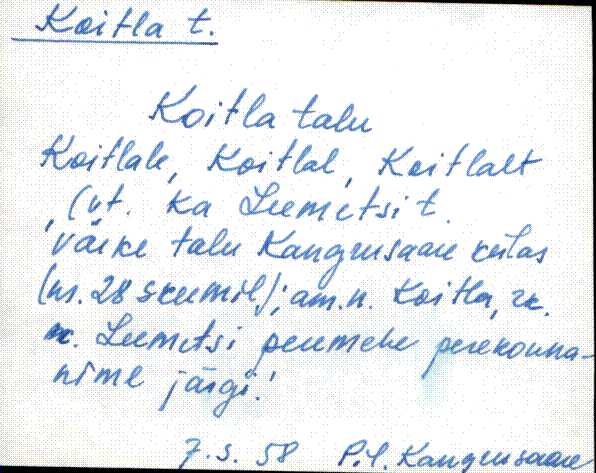 Koitla t.
Koitla talu
Koitlale, Koitlal, Koitlalt
(vt. ka Leemetsi t.
Väike talu Kangrusaare külas
(nr. 28 skeemil); am. n. Koitla, rk.
n. Leemetsi peremehe perekonna-
nime järgi.
7. s. 58 P. Y. Kangrusaare